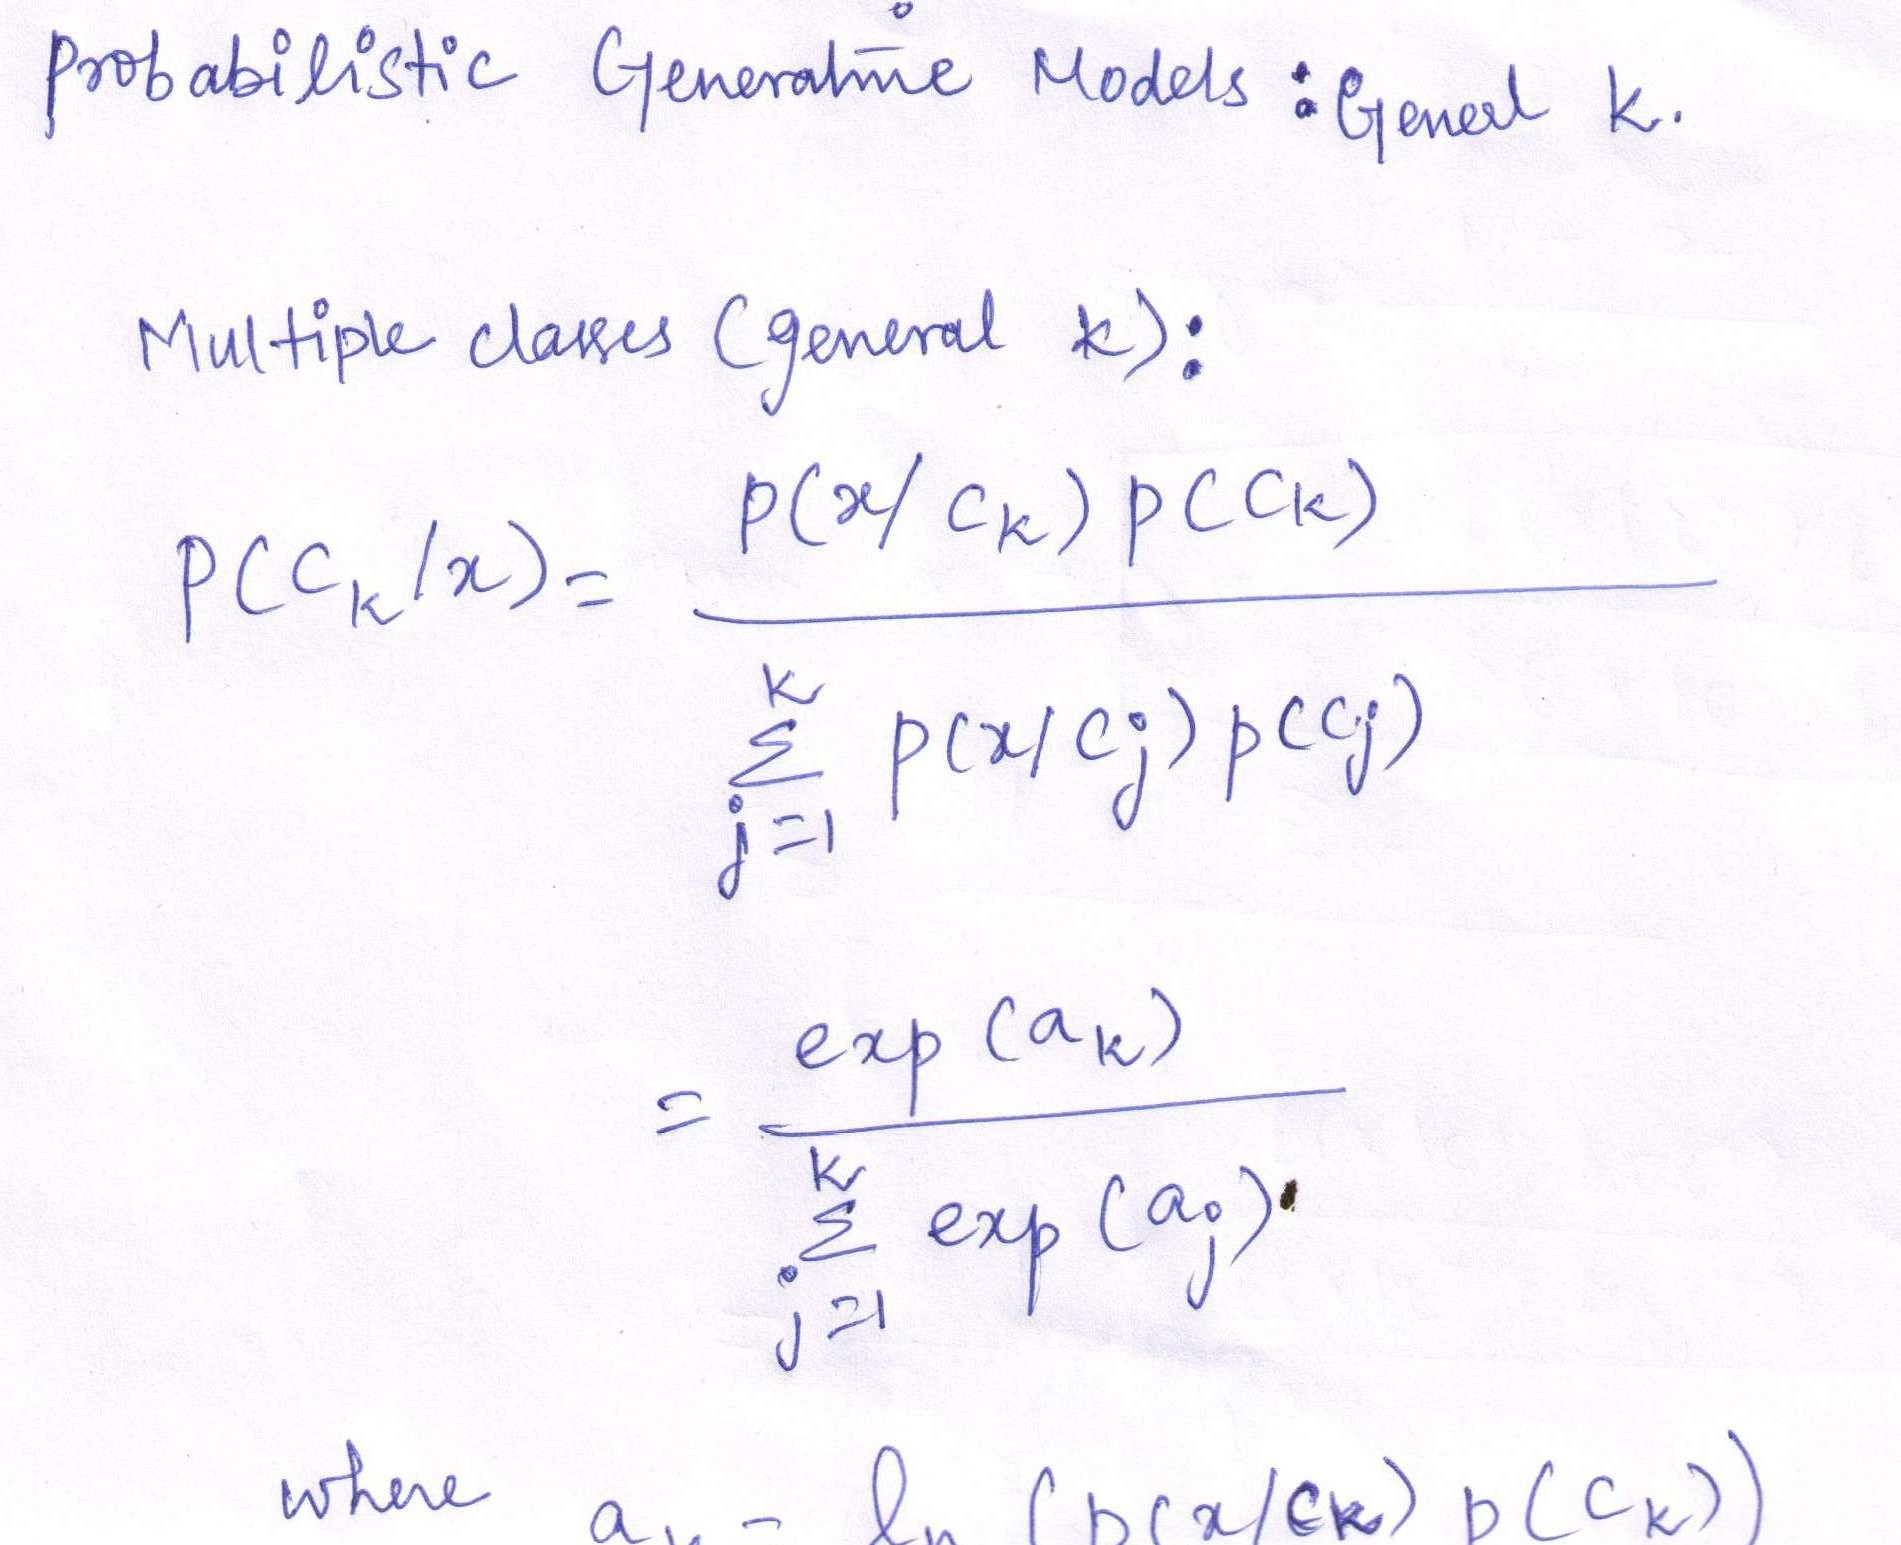 Probabilistic Generative Models : General K.
Multiple classes (general k):
P(C_k/x) = p(x/C_k) p(C_k)
K
Σ p(x/C_j) p(C_j)
j=1
= exp(a_k)
K
Σ exp(a_j).
j=1
where a_k = ln (p(x/C_k) p(C_k))